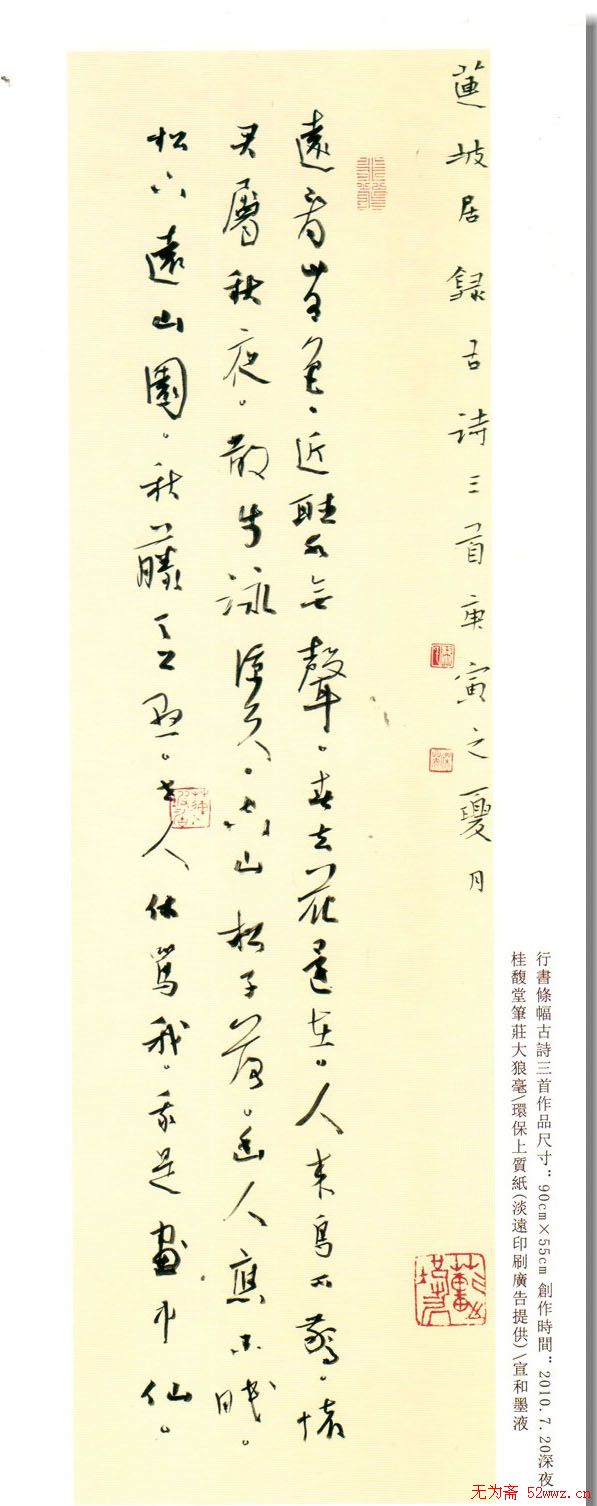 行書條幅古詩三首作品尺寸：90cm×55cm 創作時間：2010.7.20深夜
桂馥堂筆莊大狼毫\環保上質紙(淡遠印刷廣告提供)\宣和墨液
蓮坡居録古詩三首庚寅之夏月
遠看山有色、近聽水無聲。春去花還在。人來鳥不驚。懷
君屬秋夜。散步詠涼天。空山松子落。幽人應未眠。
松下遠山園。秋藤。人休罵我。我是畫中仙。
无为斋 52wwz.cn